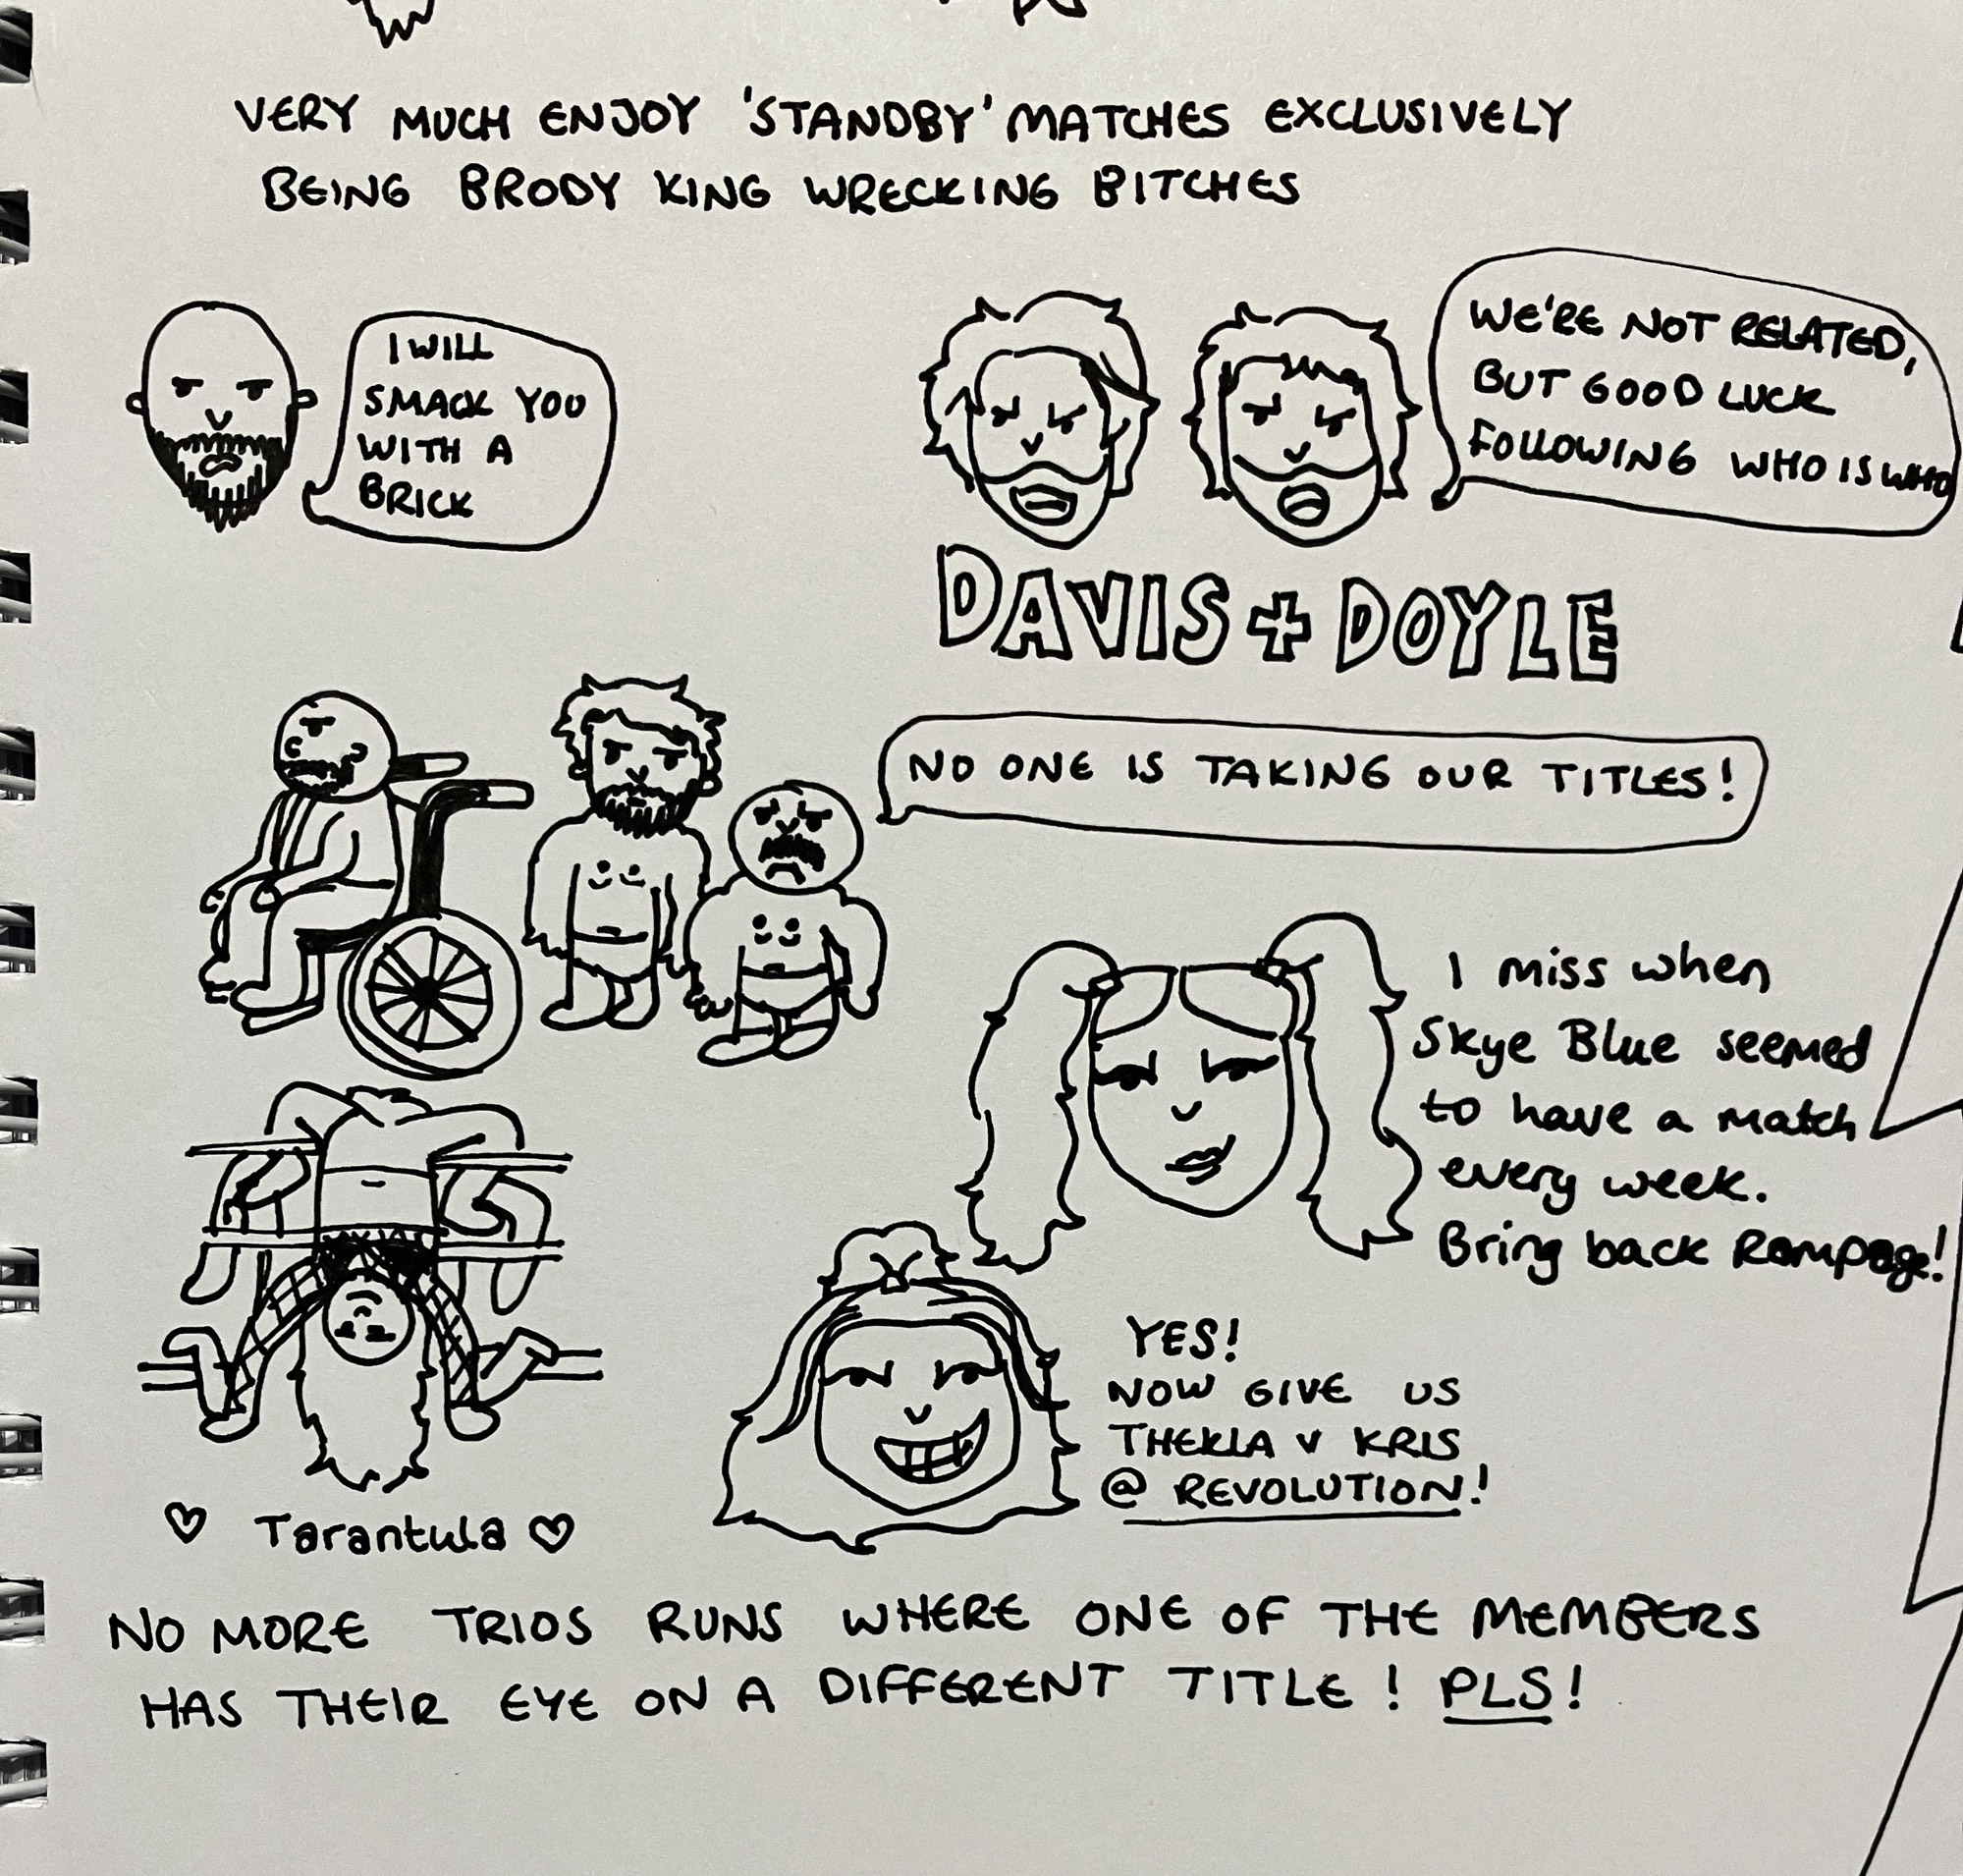 VERY MUCH ENJOY 'STANDBY' MATCHES EXCLUSIVELY
BEING BRODY KING WRECKING BITCHES
I WILL
SMACK YOU
WITH A
BRICK
WE'RE NOT RELATED,
BUT GOOD LUCK
FOLLOWING WHO IS WHO
DAVIS + DOYLE
NO ONE IS TAKING OUR TITLES!
I miss when
Skye Blue seemed
to have a match
every week.
Bring back Rampage!
YES!
NOW GIVE US
THEKLA V KRIS
@ REVOLUTION!
♡ Tarantula ♡
NO MORE TRIOS RUNS WHERE ONE OF THE MEMBERS
HAS THEIR EYE ON A DIFFERENT TITLE! PLS!